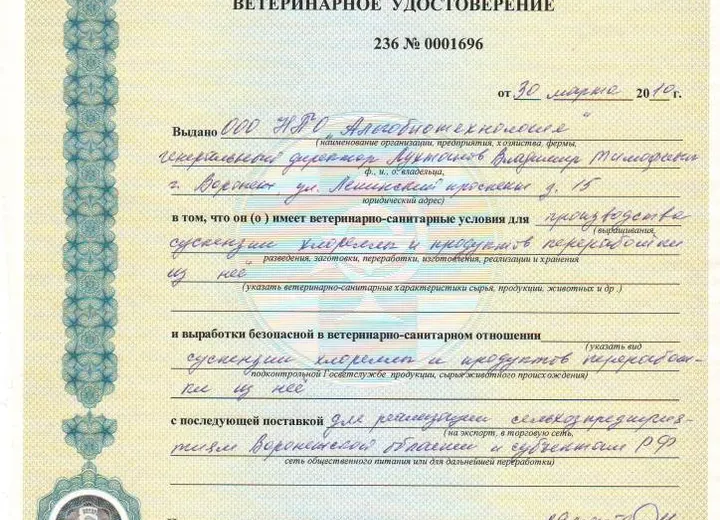 ВЕТЕРИНАРНОЕ УДОСТОВЕРЕНИЕ
236 № 0001696
от 30 марта 2010 г.
Выдано ООО НПО „Альгобиотехнология"
(наименование организации, предприятия, хозяйства, фермы,
генеральный директор Лухтанов Владимир Тимофеевич
ф., и., о. владельца,
г. Воронеж, ул. Ленинский проспект д. 15
юридический адрес)
в том, что он (о ) имеет ветеринарно-санитарные условия для производства
(выращивания,
суспензии хлореллы и продуктов переработки
разведения, заготовки, переработки, изготовления, реализации и хранения
из неё
(указать ветеринарно-санитарные характеристики сырья, продукции, животных и др .)
и выработки безопасной в ветеринарно-санитарном отношении
(указать вид
суспензии хлореллы и продуктов переработ-
подконтрольной Госветслужбе продукции, сырья животного происхождения)
ки из неё
с последующей поставкой для реализации сельхозпредприя-
(на экспорт, в торговую сеть,
тиям Воронежской области и субъектам РФ
сеть общественного питания или для дальнейшей переработки)